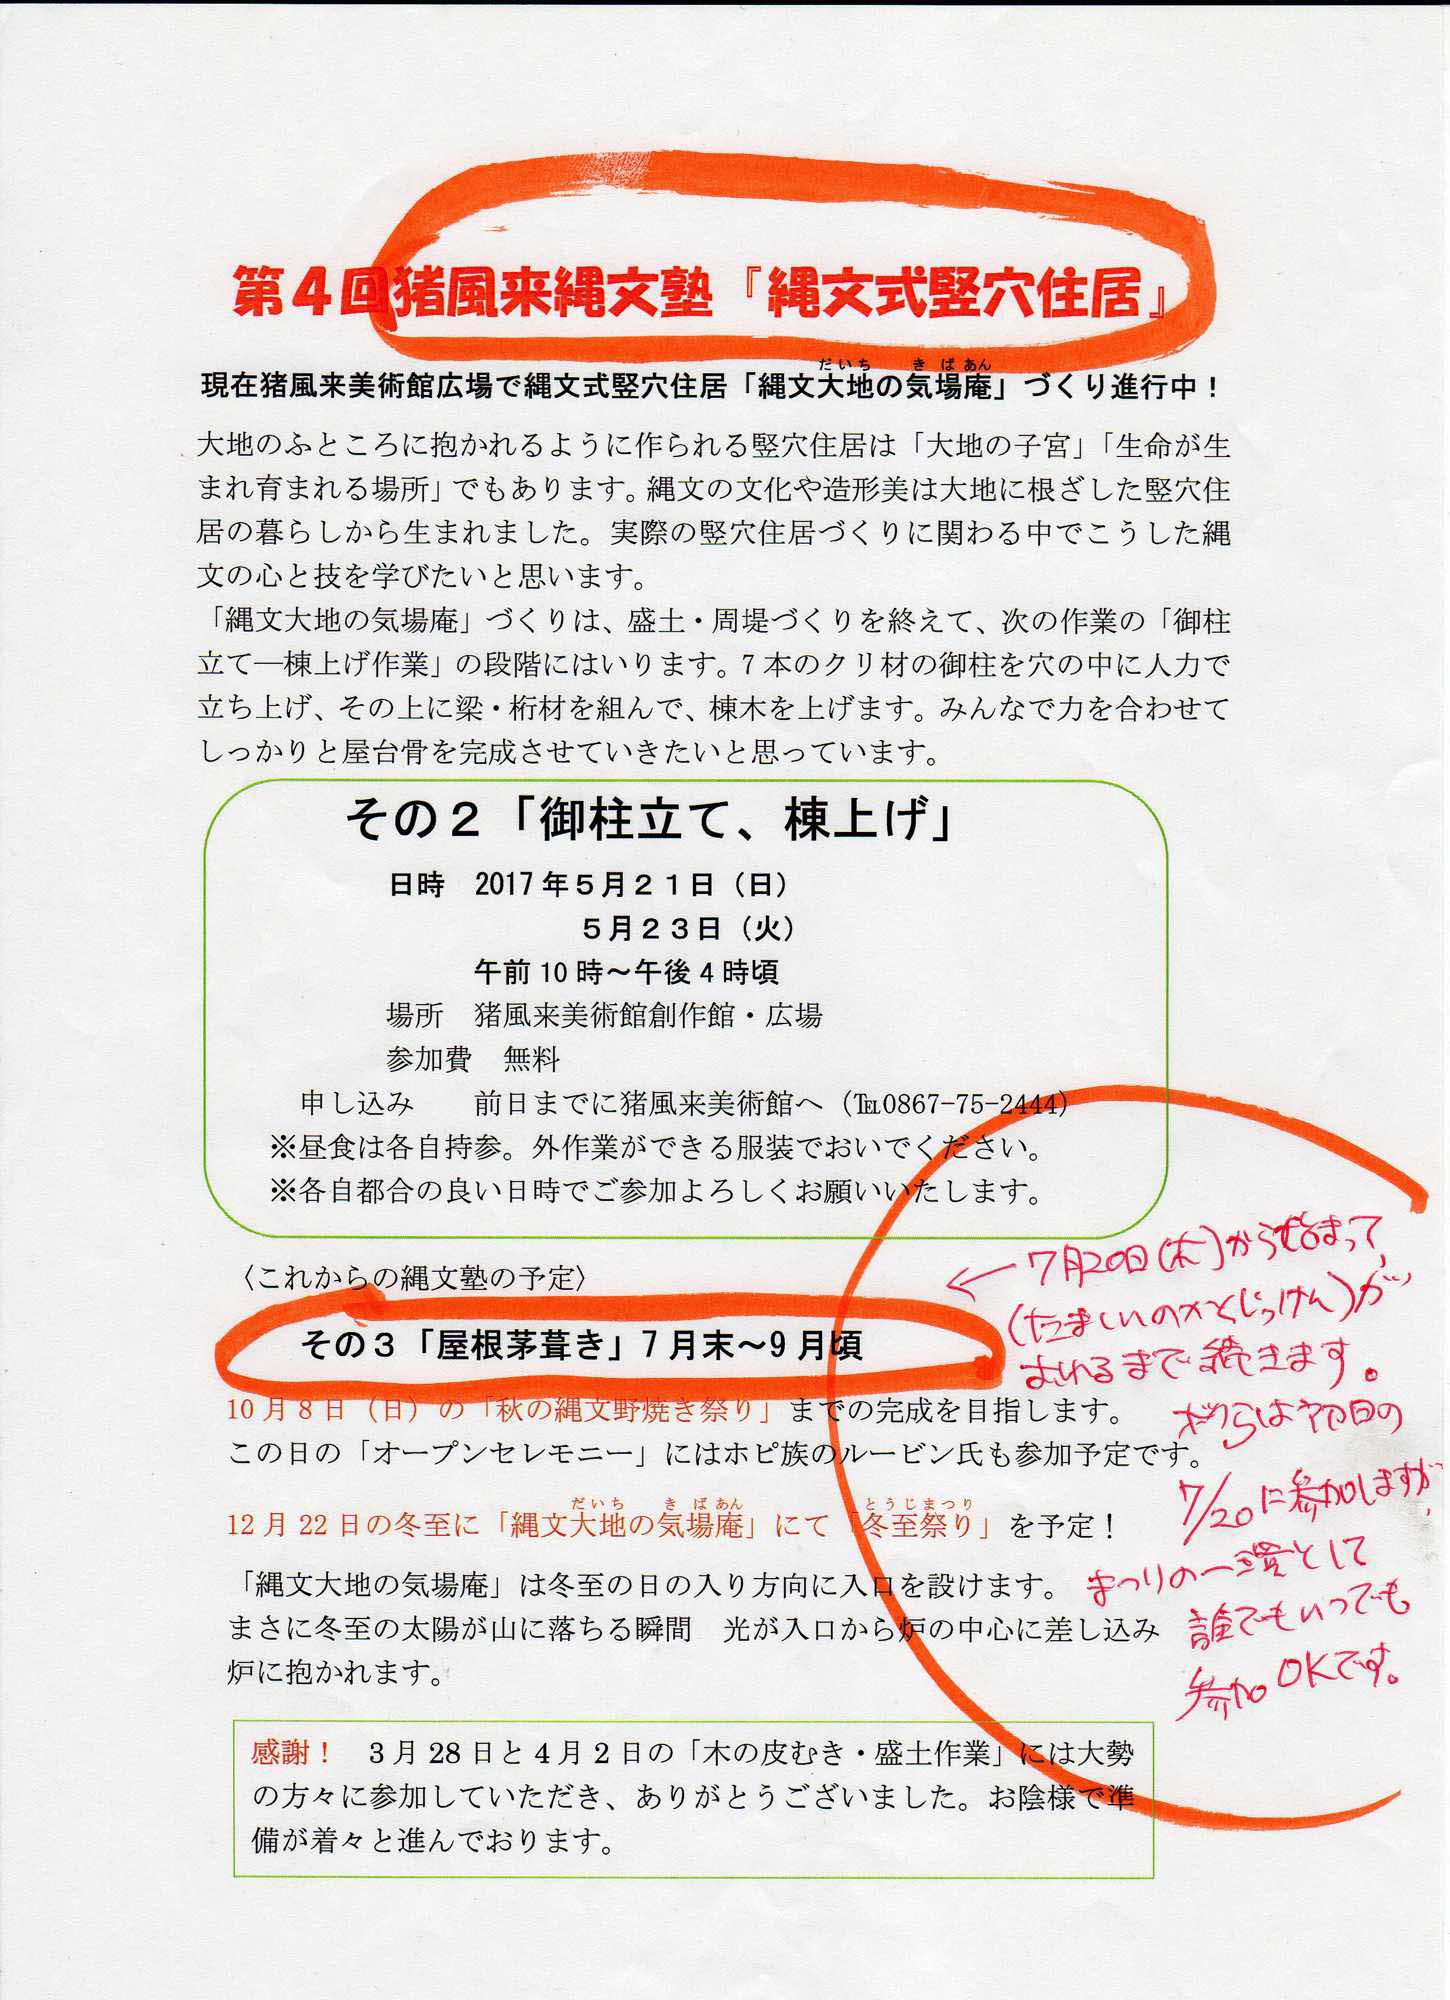 第4回猪風来縄文塾『縄文式竪穴住居』
だいち きばあん
現在猪風来美術館広場で縄文式竪穴住居「縄文大地の気場庵」づくり進行中！
大地のふところに抱かれるように作られる竪穴住居は「大地の子宮」「生命が生
まれ育まれる場所」でもあります。縄文の文化や造形美は大地に根ざした竪穴住
居の暮らしから生まれました。実際の竪穴住居づくりに関わる中でこうした縄
文の心と技を学びたいと思います。
「縄文大地の気場庵」づくりは、盛土・周堤づくりを終えて、次の作業の「御柱
立て―棟上げ作業」の段階にはいります。7本のクリ材の御柱を穴の中に人力で
立ち上げ、その上に梁・桁材を組んで、棟木を上げます。みんなで力を合わせて
しっかりと屋台骨を完成させていきたいと思っています。
その２「御柱立て、棟上げ」
日時　2017年５月２１日（日）
５月２３日（火）
午前10時～午後4時頃
場所　猪風来美術館創作館・広場
参加費　無料
申し込み　前日までに猪風来美術館へ（℡0867-75-2444）
※昼食は各自持参。外作業ができる服装でおいでください。
※各自都合の良い日時でご参加よろしくお願いいたします。
〈これからの縄文塾の予定〉
その３「屋根茅葺き」7月末～9月頃
10月8日（日）の「秋の縄文野焼き祭り」までの完成を目指します。
この日の「オープンセレモニー」にはホピ族のルービン氏も参加予定です。
だいち きばあん とうじまつり
12月22日の冬至に「縄文大地の気場庵」にて「冬至祭り」を予定！
「縄文大地の気場庵」は冬至の日の入り方向に入口を設けます。
まさに冬至の太陽が山に落ちる瞬間　光が入口から炉の中心に差し込み
炉に抱かれます。
←7月20日(木)から始まって,
(たましいの
まで続きます。
ボクらは初日の
7/20に参加しますが,
まつりの一環として
誰でもいつでも
参加OKです。
感謝！　3月28日と4月2日の「木の皮むき・盛土作業」には大勢
の方々に参加していただき、ありがとうございました。お陰様で準
備が着々と進んでおります。